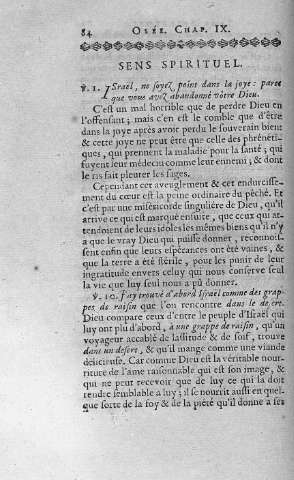 84 OSÉE. CHAP. IX.
SENS SPIRITUEL.
℣. 1. Israël, ne soyez point dans la joye: parce
que vous avez abandonné vôtre Dieu.
C'est un mal horrible que de perdre Dieu en
l'offensant; mais c'en est le comble que d'être
dans la joye aprés avoir perdu le souverain bien
& cette joye ne peut être que celle des phrénéti-
ques, qui prennent la maladie pour la santé; qui
fuyent leur médecin comme leur ennemi; & dont
le ris fait pleurer les sages.
Cependant cet aveuglement & cet endurcisse-
ment du cœur est la peine ordinaire du péché. Et
c'est par une miséricorde singuliére de Dieu, qu'il
arrive ce qui est marqué ensuite, que ceux qui at-
tendoient de leurs idoles les mêmes biens qu'il n'y
a que le vray Dieu qui puisse donner, reconnois-
sent enfin que leurs espérances ont été vaines, &
que la terre a été stérile, pour les punir de leur
ingratitude envers celuy qui nous conserve seul
la vie que luy seul nous a pû donner.
℣. 10. J'ay trouvé d'abord Israël comme des grap-
pes de raisin que l'on rencontre dans le desert.
Dieu compare ceux d'entre le peuple d'Israël qui
luy ont plu d'abord, à une grappe de raisin, qu'un
voyageur accablé de lassitude & de soif, trouve
dans un desert, & qu'il mange comme une viande
délicieuse. Car comme Dieu est la véritable nour-
riture de l'ame raisonnable qui est son image, &
qui ne peut recevoir que de luy ce qui la doit
rendre semblable à luy; il se nourrit aussi en quel-
que sorte de la foy & de la piété qu'il donne à ses